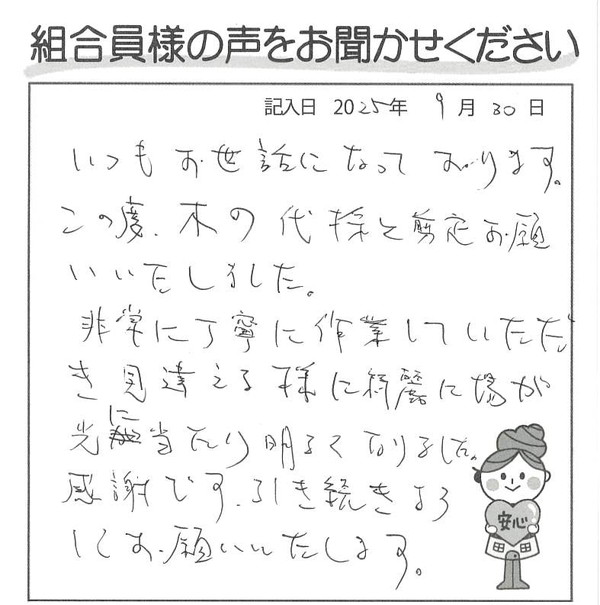 組合員様の声をお聞かせください
記入日 2025年 9月 30日
いつもお世話になって おります。
この度、木の代採と剪定お願
いいたしました。
非常に丁寧に作業していただ
き見違える様に綺麗に場が
光に当たり明るくなりました。
感謝です、引き続きよろ
しくお願いいたします。
安心